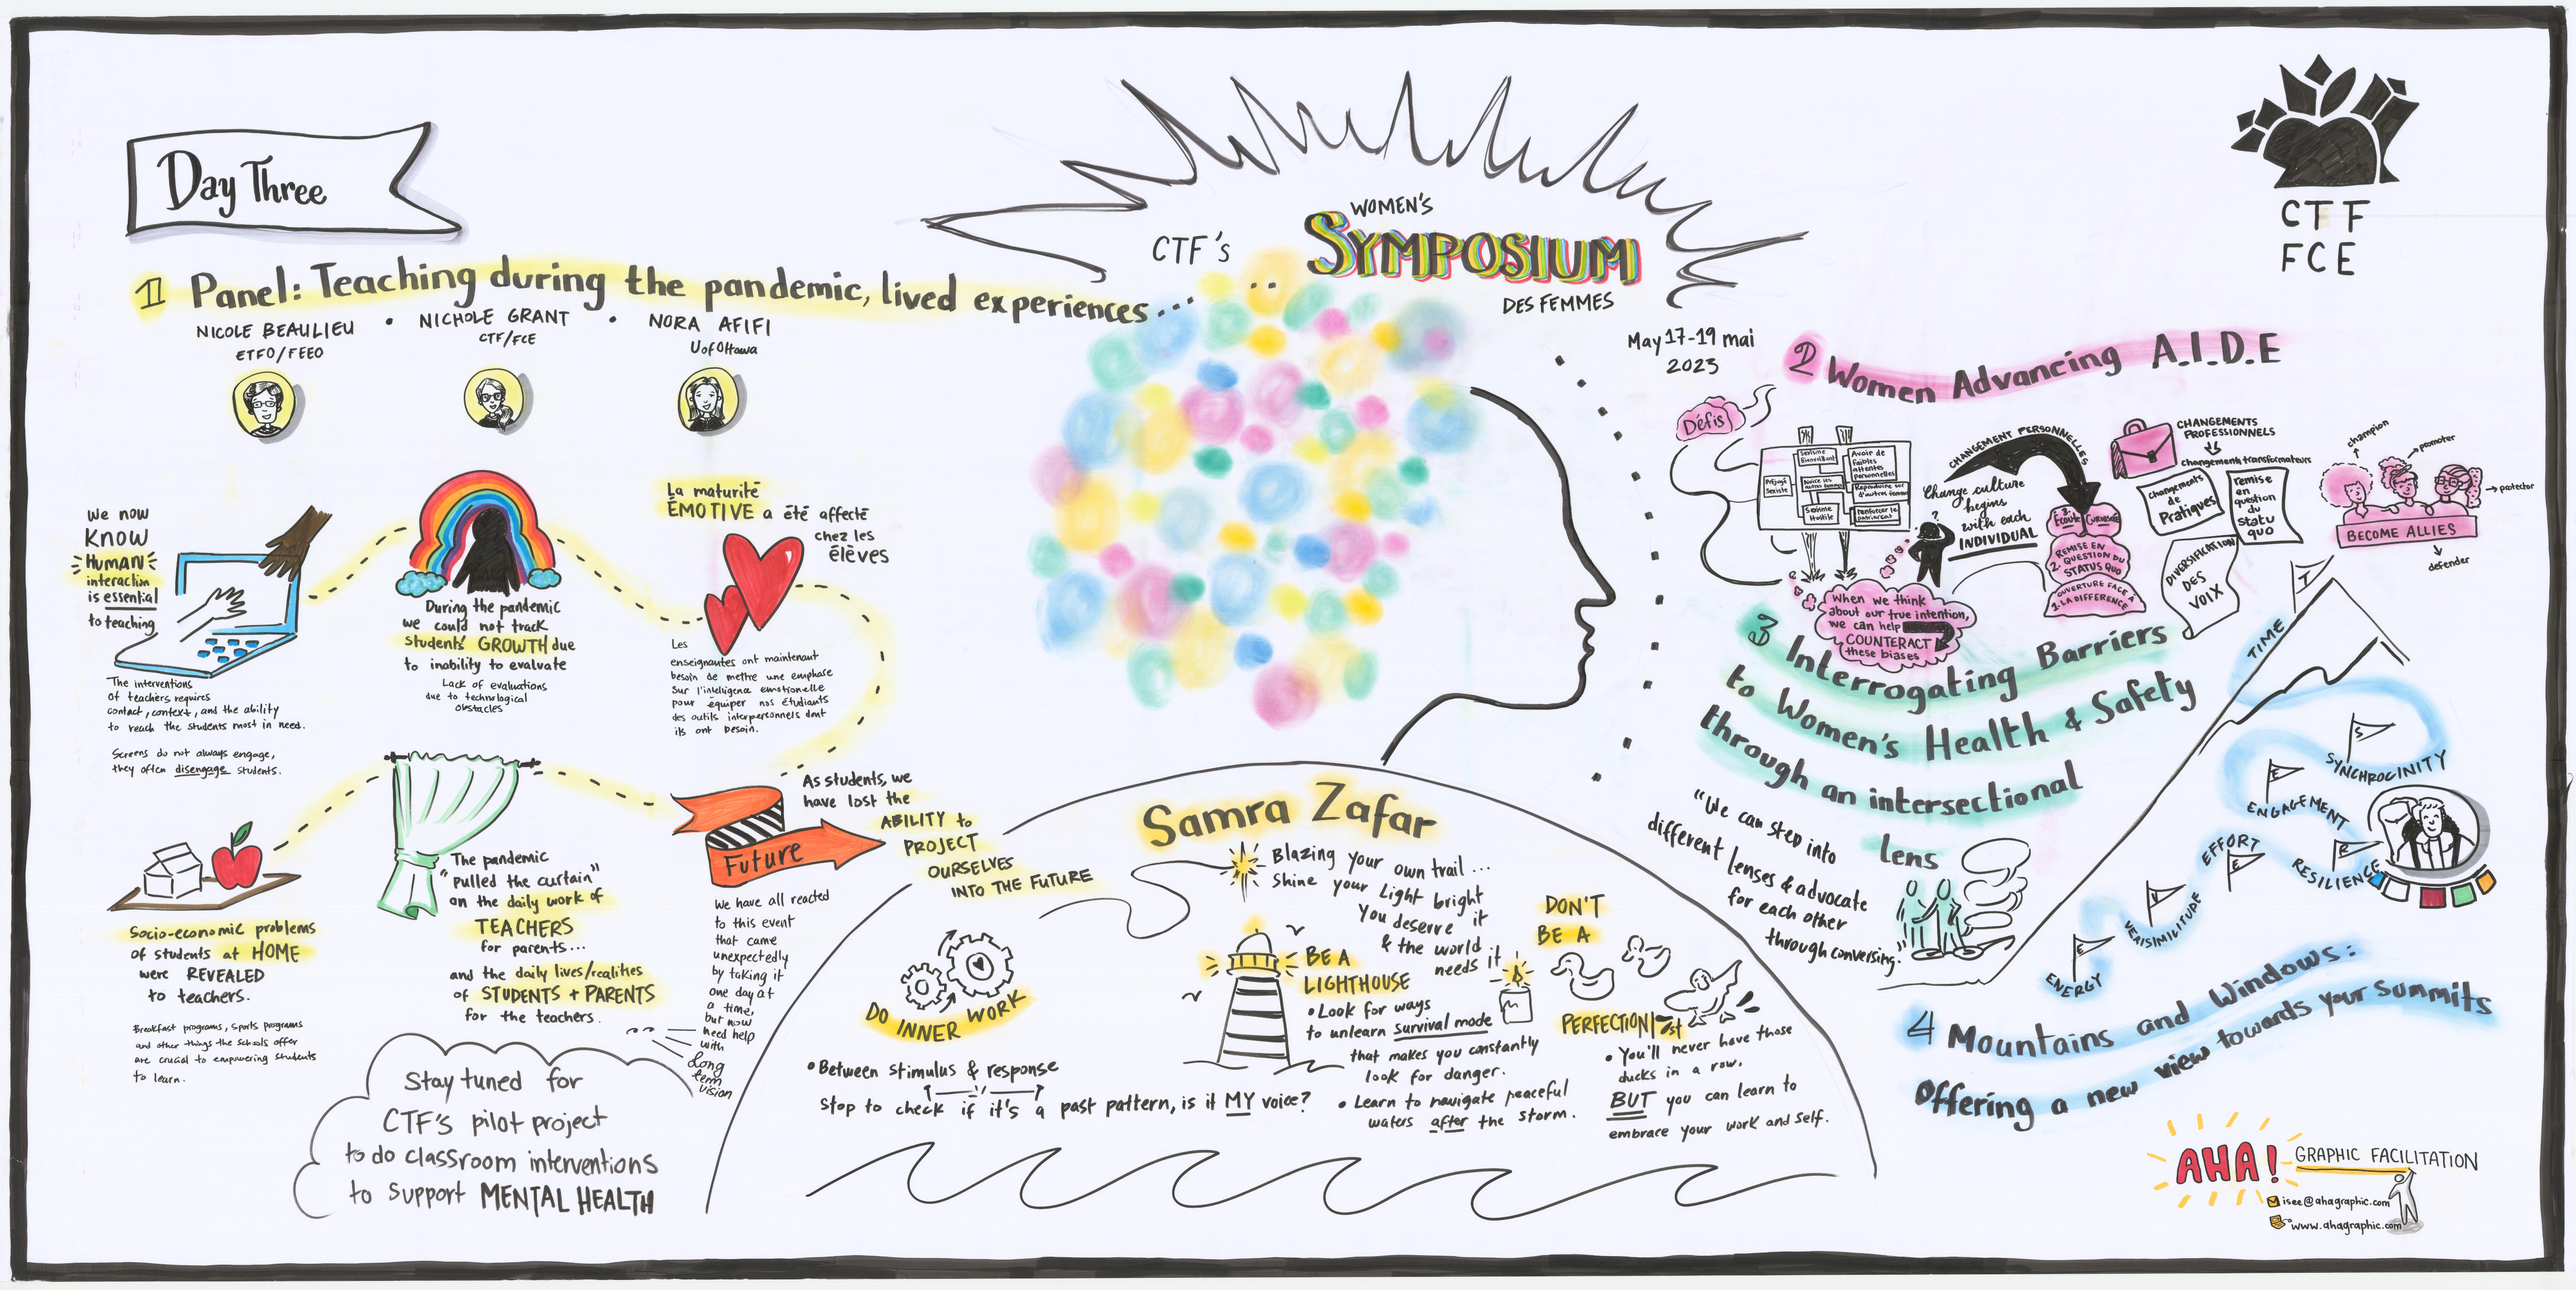 Day Three
CTF
FCE
CTF's
WOMEN'S
SYMPOSIUM
DES FEMMES
May 17-19 mai
2023
1 Panel: Teaching during the pandemic, lived experiences...
NICOLE BEAULIEU • NICHOLE GRANT • NORA AFIFI
ETFO/FEEO
CTF/FCE
U of Ottawa
We now
KNOW
HUMAN
interaction
is essential
to teaching
The interventions
of teachers requires
contact, context, and the ability
to reach the students most in need.
Screens do not always engage,
they often disengage students.
During the pandemic
we could not track
students' GROWTH due
to inability to evaluate
Lack of evaluations
due to technological
obstacles
La maturité
ÉMOTIVE a été affecté
chez les
élèves
Les
enseignantes ont maintenant
besoin de mettre une emphase
sur l'intelligence emotionelle
pour équiper nos étudiants
des outils interpersonnels dont
ils ont besoin.
As students, we
have lost the
ABILITY to
PROJECT
OURSELVES
INTO THE FUTURE
Future
We have all reacted
to this event
that came
unexpectedly
by taking it
one day at
a time,
but now
need help
with
Long
term
vision
The pandemic
"pulled the curtain"
on the daily work of
TEACHERS
for parents...
and the daily lives/realities
of STUDENTS + PARENTS
for the teachers.
Socio-economic problems
of students at HOME
were REVEALED
to teachers.
Breakfast programs, sports programs
and other things the schools offer
are crucial to empowering students
to learn.
Stay tuned for
CTF's pilot project
to do classroom interventions
to support MENTAL HEALTH
Samra Zafar
Blazing your own trail...
Shine your Light bright
You deserve it
& the world
needs it
DO INNER WORK
• Between stimulus & response
Stop to check if it's a past pattern, is it MY voice?
BE A
LIGHTHOUSE
• Look for ways
to unlearn survival mode
that makes you constantly
look for danger.
• Learn to navigate peaceful
waters after the storm.
DON'T
BE A
PERFECTIONIST
• You'll never have those
ducks in a row.
BUT you can learn to
embrace your work and self.
2 Women Advancing A.I.D.E
Défis
Préjugé
Sexiste
Sexisme
Bienveillant
Sexisme
Hostile
Avoir de
faibles
attentes
personnelles
Reproduire sur
d'autres femmes
Renforcer le
patriarcat
CHANGEMENT PERSONNELLES
Change culture
begins
with each
INDIVIDUAL
?
When we think
about our true intention,
we can help
COUNTERACT
these biases
3.
Écoute Curiosité
REMISE EN
2. QUESTION DU
STATUS QUO
OUVERTURE FACE À
1. LA DIFFÉRENCE
CHANGEMENTS
PROFESSIONNELS
changements transformateurs
changements
de
Pratiques
remise
en
question
du
statu
quo
DIVERSIFICATION
DES
VOIX
champion
promoter
protector
BECOME ALLIES
defender
3 Interrogating Barriers
to Women's Health & Safety
through an intersectional
lens
"We can step into
different lenses & advocate
for each other
through conversing."
T
TIME
S
SYNCHROCINITY
E
ENGAGEMENT
R
RESILIENCE
E
EFFORT
V
VERISIMILITUDE
E
ENERGY
4 Mountains and Windows:
Offering a new view towards your summits
AHA! GRAPHIC FACILITATION
isee@ahagraphic.com
www.ahagraphic.com